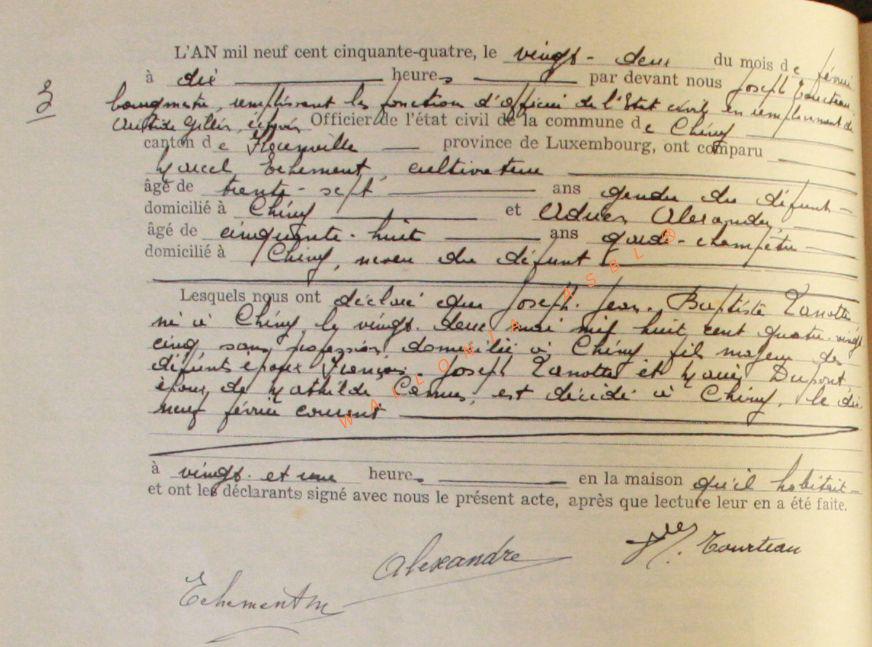 L'AN mil neuf cent cinquante-quatre, le vingt-deux du mois de février
3
à dix heures par devant nous Joseph Tourteau
bourgmestre, remplissant les fonction d'officier de l'Etat civil, en remplacement de
Aristide Gillis, échevin Officier de l'état civil de la commune de Chiny
canton de Florenville province de Luxembourg, ont comparu
Marcel Echement, cultivateur
âgé de trente-sept ans gendre du défunt
domicilié à Chiny et Adrien Alexandre,
âgé de cinquante-huit ans garde-champêtre
domicilié à Chiny, neveu du défunt
Lesquels nous ont déclaré que Joseph-Jean-Baptiste Zanotte
né à Chiny le vingt-deux mai mil huit cent quatre-vingt
cinq sans profession domicilié à Chiny fils majeur des
défunts époux François-Joseph Zanotte et Marie Dupont,
époux de Mathilde Camus, est décédé à Chiny, le dix
neuf février courant
à vingt et une heures en la maison qu'il habitait
et ont les déclarants signé avec nous le présent acte, après que lecture leur en a été faite.
Alexandre
J. Tourteau
Echement M
WALLONIA ASBL ®